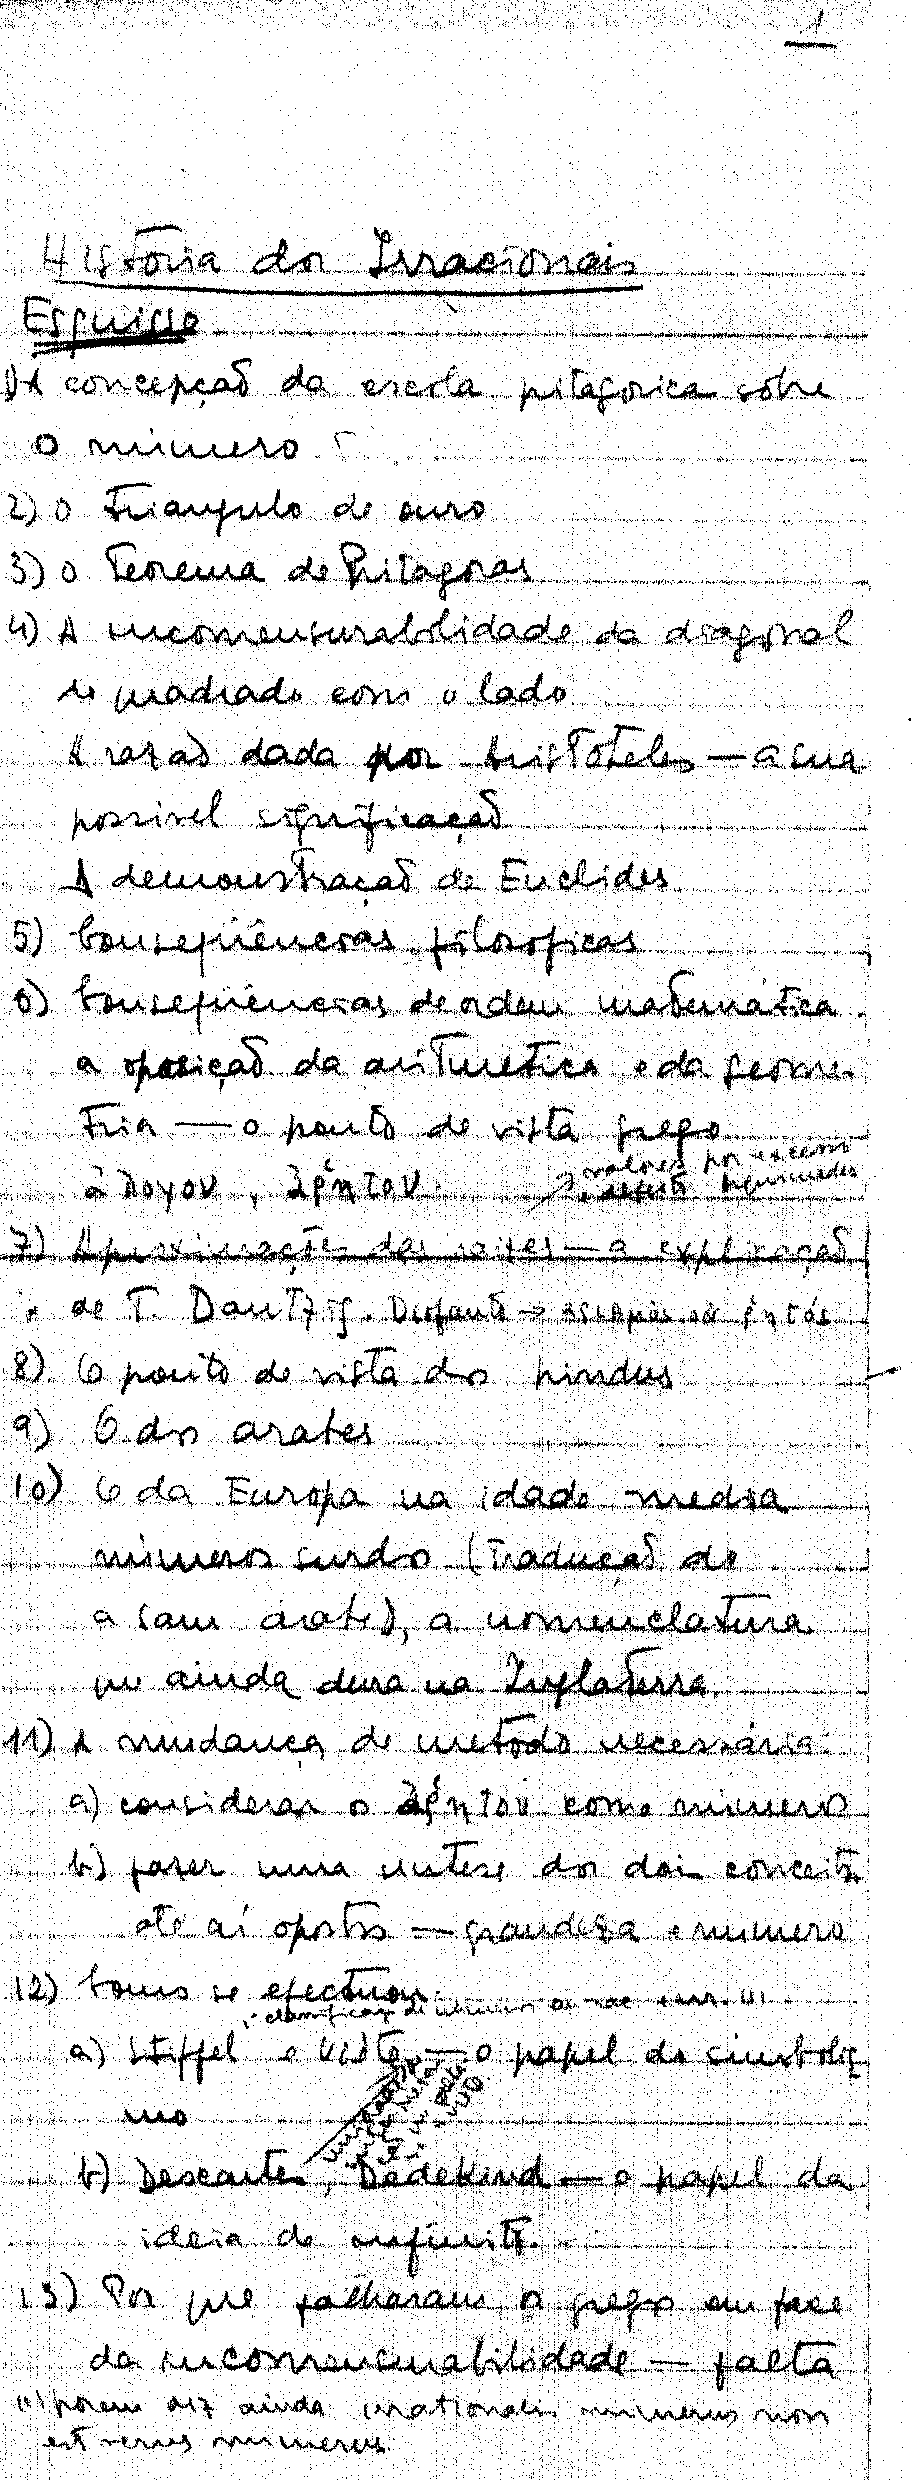 1
História dos Irracionais
Esquisso
1) A concepção da escola pitagórica sôbre
o número
2) O triangulo de ouro
3) O Teorema de Pitagoras
4) A incomensurabilidade da diagonal
do quadrado com o lado
A razão dada por Aristóteles — a sua
possivel significação
A demonstração de Euclides
5) Consequências filosoficas
6) Consequências de ordem matemática.
a oposição da aritmetica e da geome-
tria — o ponto de vista grego
ἄλογον, ἄρρητον.
valores por excesso
e defeito Arquimedes
7) Aproximações das raizes — a explicação
de T. Dantzig. Diofanto →
8) O ponto de vista dos hindus
9) O dos arabes
10) O da Europa na idade media
números surdos (Tradução do
asam arabe), a nomenclatura
que ainda dura na Inglaterra
11) A mudança de metodo necessária:
a) considerar o ἄρρητον como número
b) fazer uma sintese dos dois conceitos
até aí opostos — grandeza e número
12) Como se efectuou.
a) Stiffel e Viète — o papel do simbolis
mo
b) Descartes, Dedekind — o papel da
ideia de infinito.
13) Por que falharam os gregos em face
da incomensurabilidade — falta
porem diz ainda irrationalis numerus non
est verus numerus